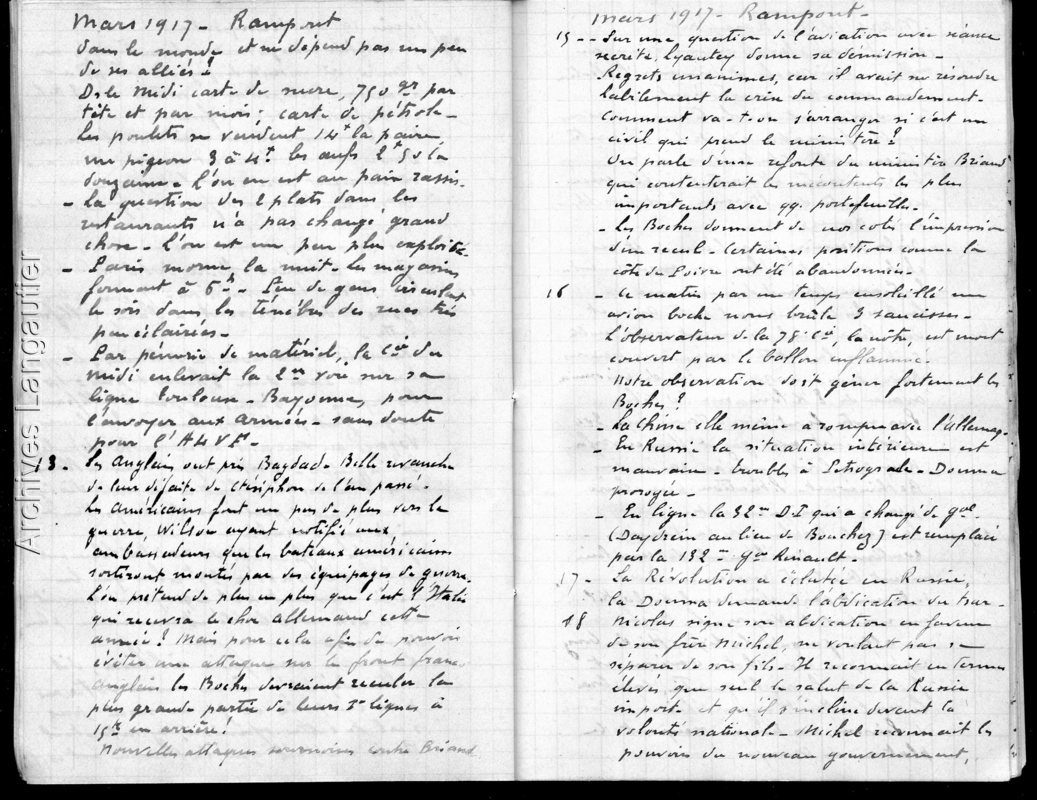 Mars 1917 - Rampont
dans le monde et ne dépend pas un peu
de ses alliés !
Ds le midi carte de sucre, 750 gr par
tête et par mois ; carte de pétrole -
Les poulets se vendent 14f la paire,
un pigeon 3 à 4f. les œufs 2f50 la
douzaine - L'on en est au pain rassis.
- La question des 2 plats dans les
restaurants n'a pas changé grand
chose - L'on est un peu plus exploité.
- Paris morne la nuit - les magasins
fermant à 6h - Peu de gens circulent
le soir dans les ténèbres des rues très
peu éclairées -
- Par pénurie de matériel, la Cie du
midi enlevait la 2me voie sur sa
ligne Toulouse - Bayonne, pour
l'envoyer aux armées - sans doute
pour l'
13 - Les Anglais ont pris Bagdad - Belle revanche
de leur défaite de Ctésiphon de l'an passé -
Les Américains font un pas de plus vers la
guerre, Wilson ayant notifié aux
ambassadeurs que les bateaux américains
sortiront montés par des équipages de guerre.
L'on prétend de plus en plus que c'est l'Italie
qui recevra le choc allemand cette
année ! Mais pour cela afin de pouvoir
éviter une attaque sur le front franco
anglais les Boches devraient reculer la
plus grande partie de leurs 1e lignes à
15k en arrière !
Nouvelles attaques sournoises contre Briand
Mars 1917 - Rampont -
15 - - Sur une question de l'aviation avec séance
secrète, Lyautey donne sa démission -
Regrets unanimes, car il avait su résoudre
habilement la crise du commandement -
Comment va-t-on s'arranger si c'est un
civil qui prend le ministère ?
On parle d'une refonte du ministère Briand
qui contenterait les mécontents les plus
importants avec qq. portefeuilles -
- Les Boches donnent de nos cotés l'impression
d'un recul - Certaines positions comme la
côte du Poivre ont été abandonnées -
16 - Ce matin par un temps ensoleillé un
avion boche nous brûle 3 saucisses -
L'observateur de la 78e Cie, la nôtre, est mort
couvert par le ballon enflammé
Notre observation doit gêner fortement les
Boches ?
- La Chine elle même a rompu avec l'allemag.
- En Russie la situation intérieure est
mauvaise - troubles à Petrograde - Douma
prorogée -
- En ligne la 32me D.I qui a changé de gal
(Daydrein au lieu de Bouchez) est remplacé
par la 132me gal Renault -
17 - La Révolution a éclatée en Russie,
la Douma demande l'abdication du tsar -
18 Nicolas signe son abdication en faveur
de son frère Michel, ne voulant pas se
séparer de son fils - Il reconnait en termes
élevés, que seul le salut de la Russie
importe et qu'il s'incline devant la
volonté nationale - Michel reconnait les
pouvoirs du nouveau gouvernement,
Archives Langautier